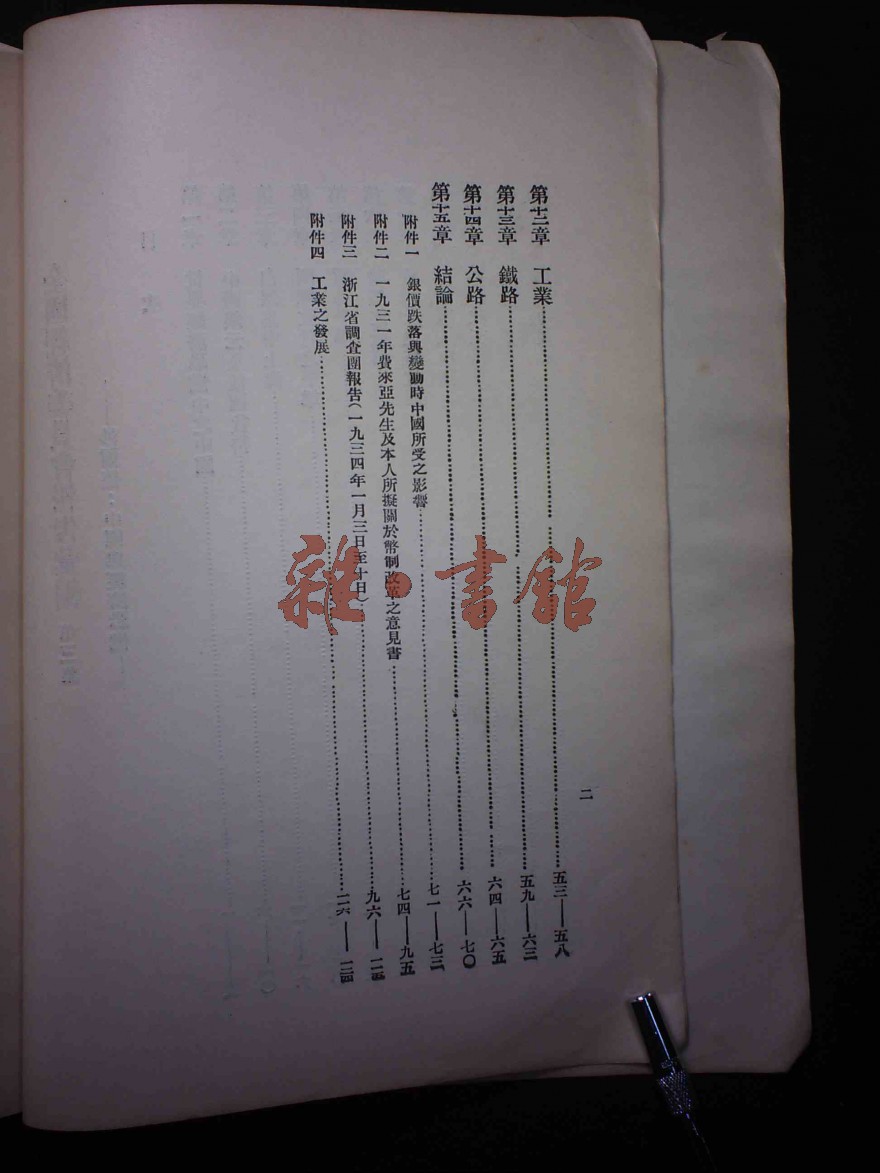 第十二章 工業 五三——五八
第十三章 鐵路 五九——六三
第十四章 公路 六四——六五
第十五章 結論 六六——七〇
附件一 銀價跌落與變動時中國所受之影響 七一——七三
附件二 一九三一年費來亞先生及本人所擬關於幣制改革之意見書 七四——九五
附件三 浙江省調查團報告(一九三四年一月三日至十日) 九六——
附件四 工業之發展
二
雜·書館